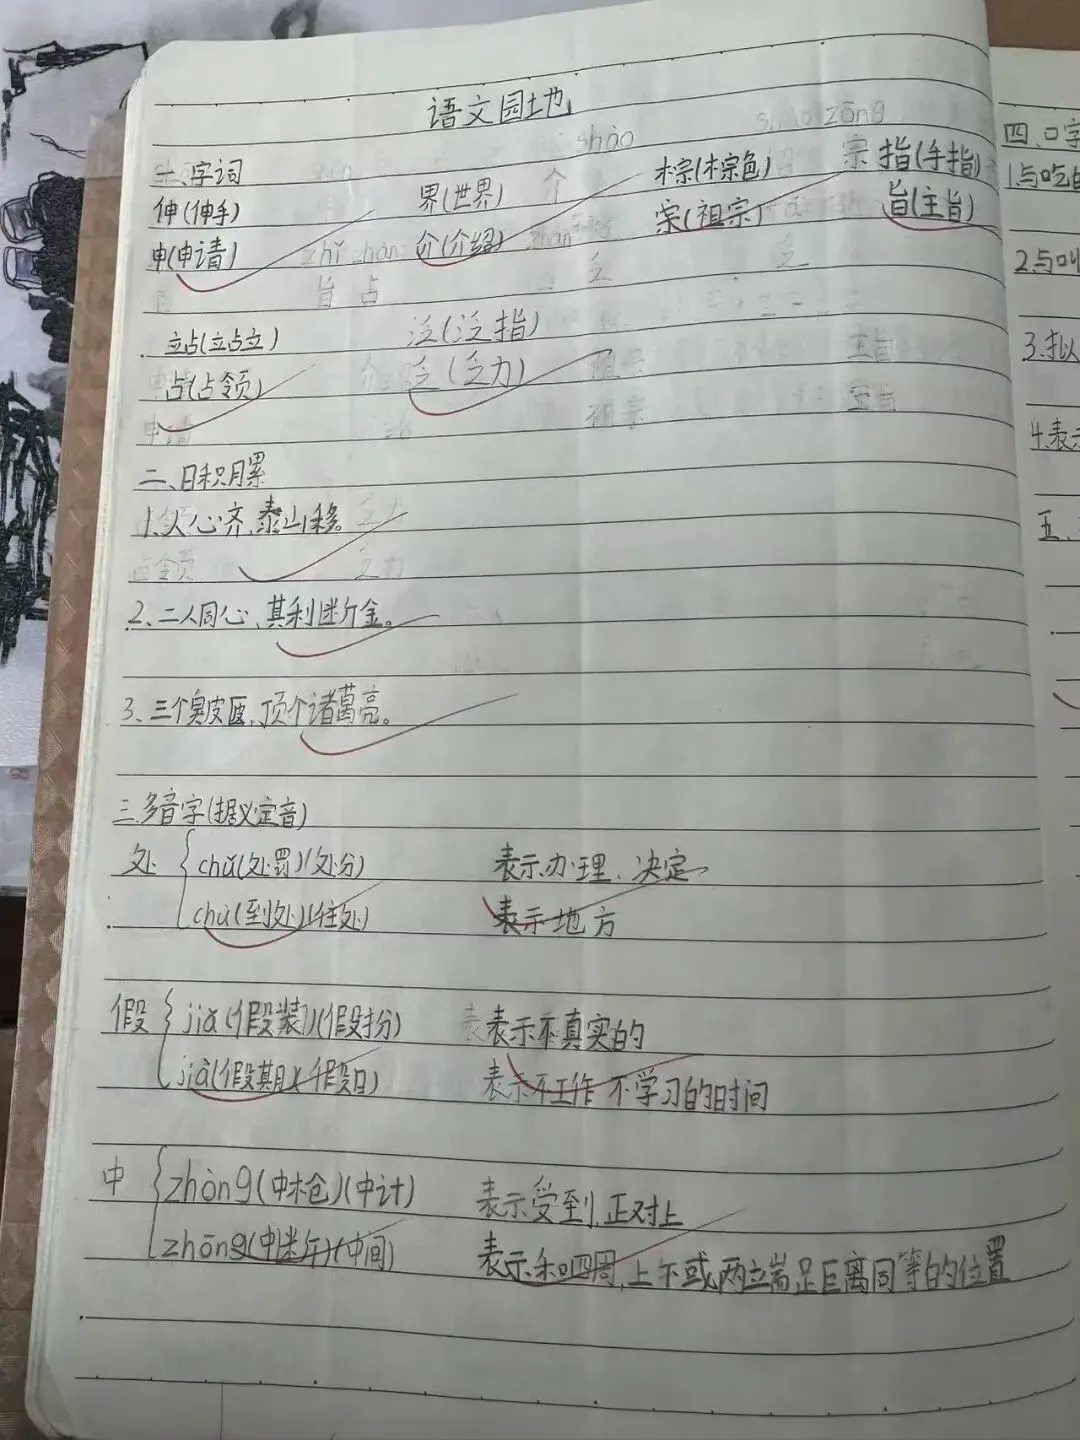 语文园地
一、字词
伸(伸手) 界(世界) 棕(棕色) 指(手指)
申(申请) 介(介绍) 宗(祖宗) 旨(主旨)
站(站立) 泛(泛指)
占(占领) 乏(乏力)
二、日积月累
1、人心齐,泰山移。
2、二人同心,其利断金。
3、三个臭皮匠,顶个诸葛亮。
三.多音字(据义定音)
处 chǔ(处罚)(处分) 表示办理、决定
chù(到处)(住处) 表示地方
假 jiǎ(假装)(假扮) 表示不真实的
jià(假期)(假日) 表示不工作 不学习的时间
中 zhòng(中枪)(中计) 表示受到,正对上
zhōng(中)(中间) 表示和四周,上下或两端距离同等的位置
四、口字
1.与吃
2.与叫
3.拟
4.表示
五、